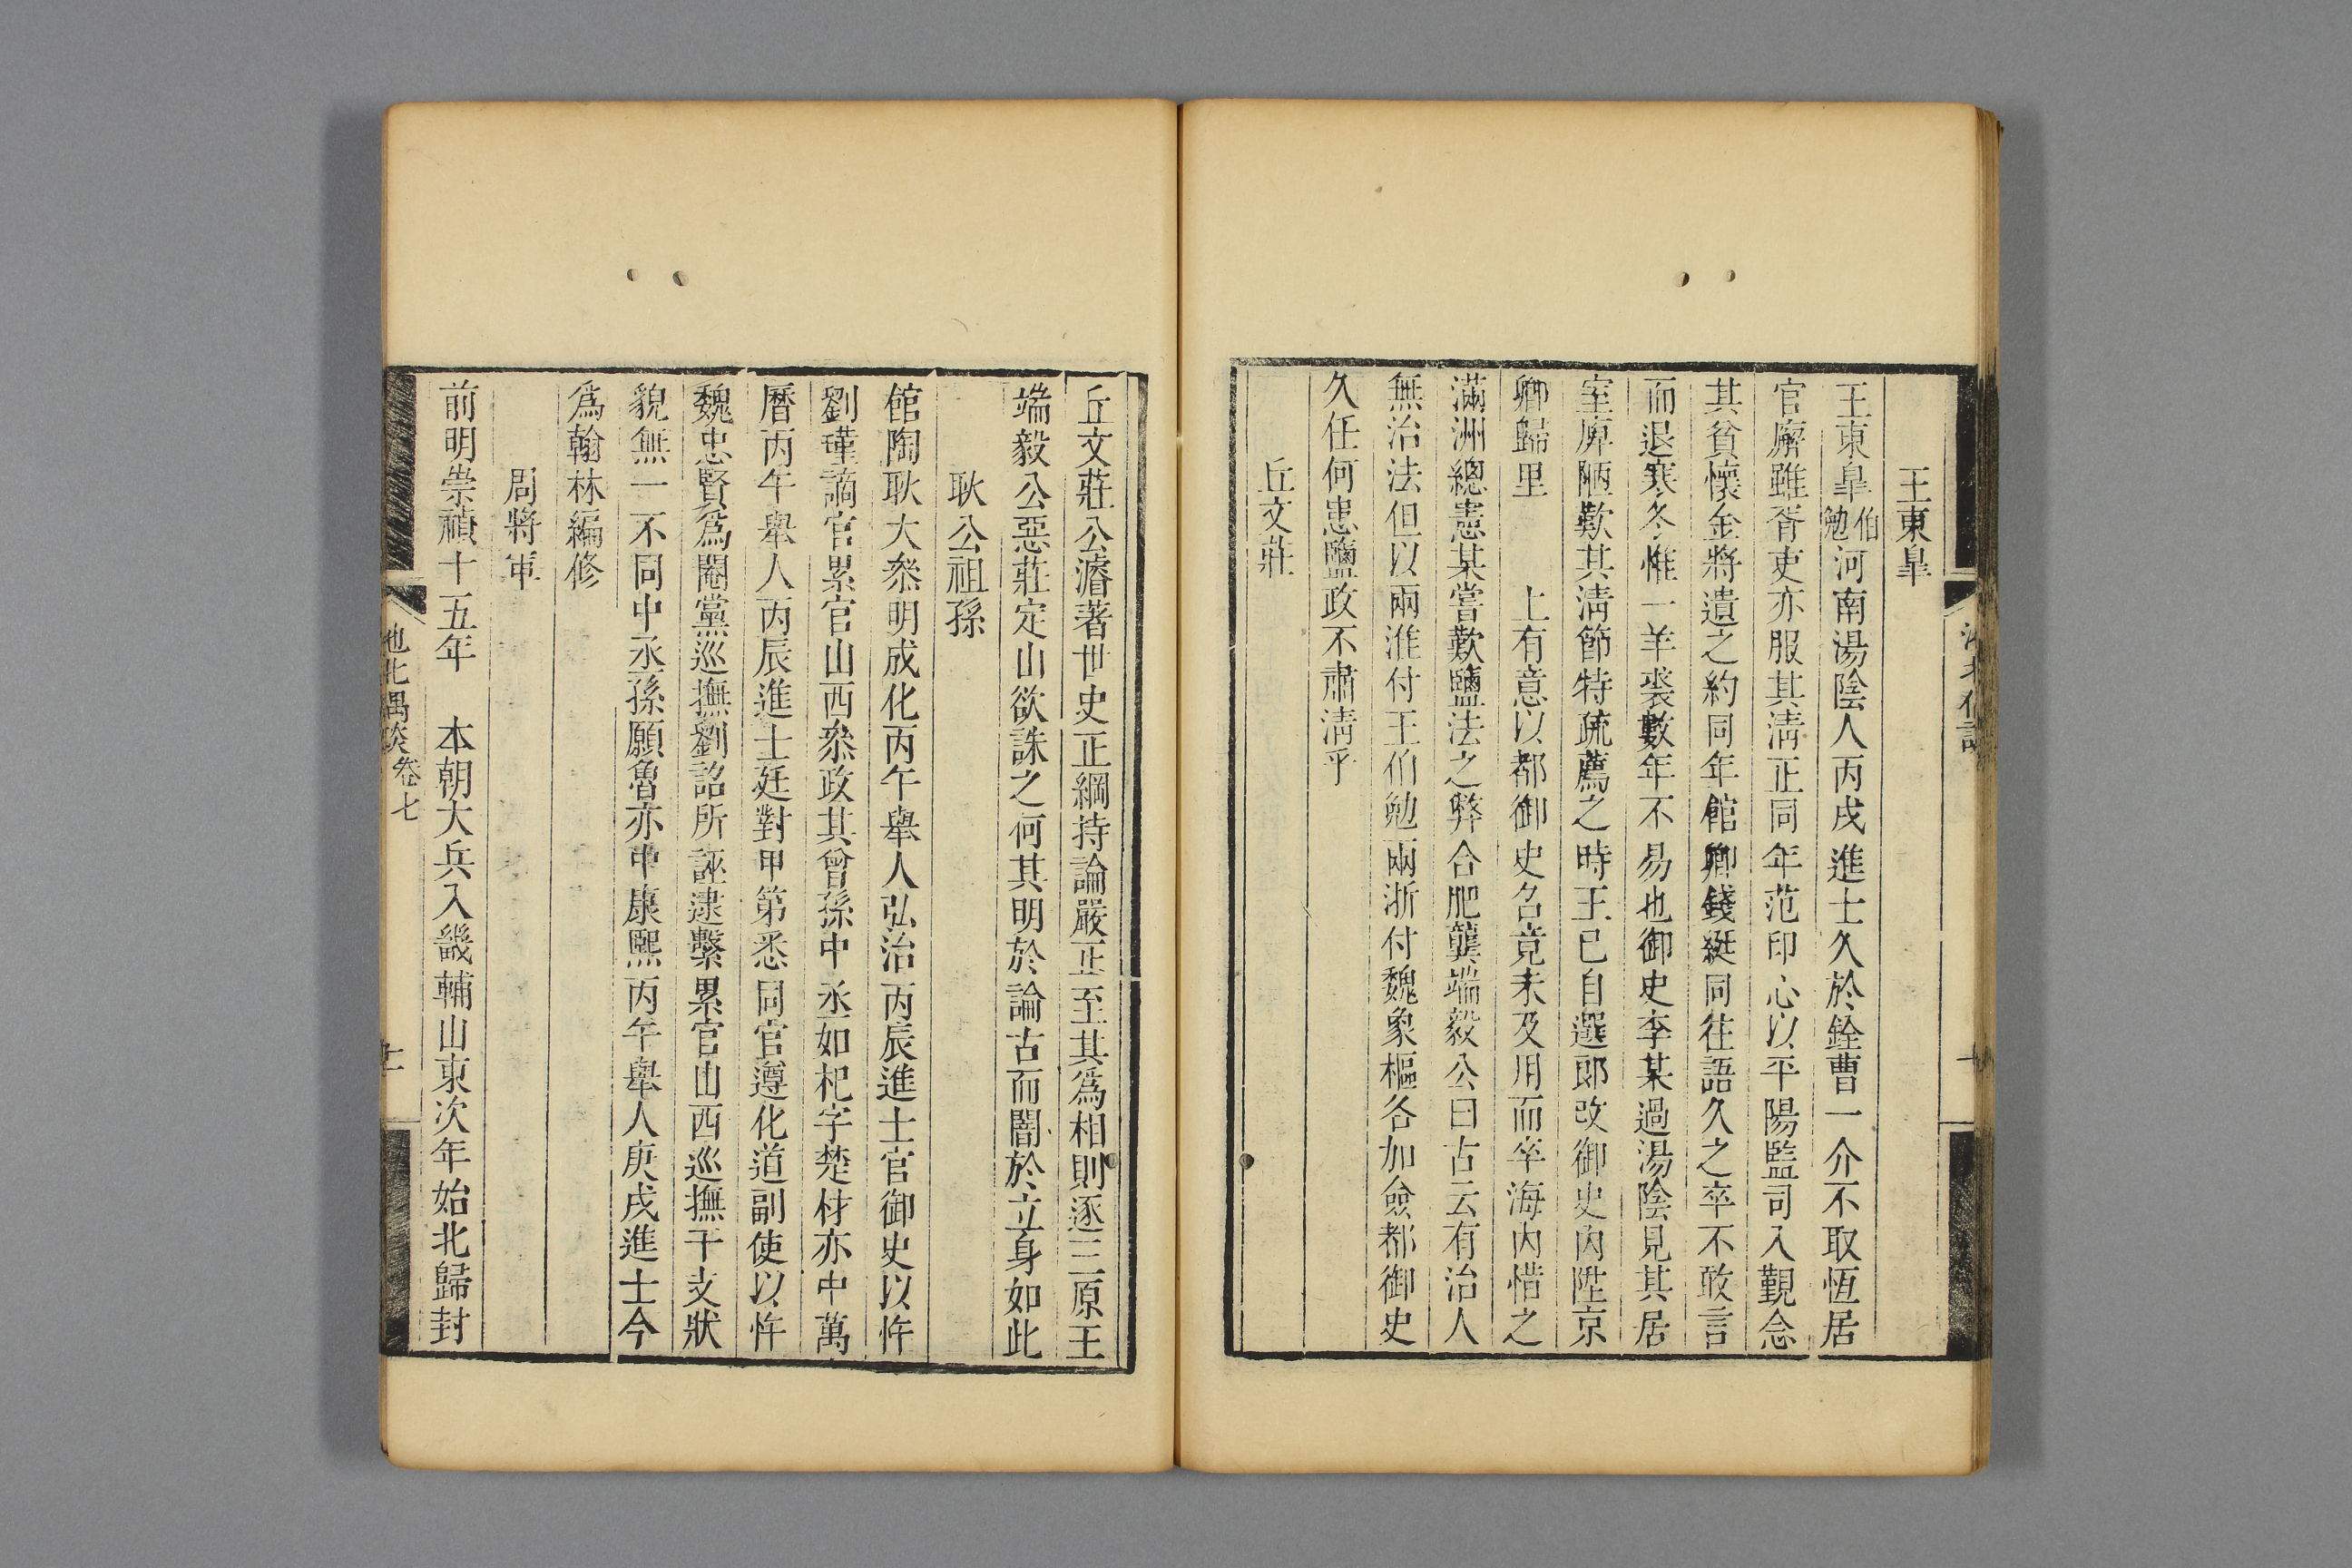 王東皐
王東皐伯勉河南湯陰人丙戌進士久於銓曹一介不取恆居
官廨雖胥吏亦服其淸正同年范印心以平陽監司入覲念
其貧懷金將遺之約同年館卿錢綎同往語久之卒不敢言
而退寒冬惟一羊裘數年不易也御史李某過湯陰見其居
室庳陋歎其淸節特疏薦之時王已自選郞改御史內陞京
卿歸里　上有意以都御史召竟未及用而卒海內惜之
滿洲總憲某嘗歎鹽法之弊合肥龔端毅公曰古云有治人
無治法但以兩淮付王伯勉兩浙付魏象樞各加僉都御史
久任何患鹽政不肅淸乎
丘文莊
丘文莊公濬著世史正綱持論嚴正至其爲相則逐三原王
端毅公惡莊定山欲誅之何其明於論古而闇於立身如此
耿公祖孫
館陶耿大叅明成化丙午舉人弘治丙辰進士官御史以忤
劉瑾謫官累官山西叅政其曾孫中丞如杞字楚材亦中萬
曆丙午舉人丙辰進士廷對甲第悉同官遵化道副使以忤
魏忠賢爲閹黨巡撫劉詔所誣逮繫累官山西巡撫干支狀
貌無一不同中丞孫願魯亦中康熙丙午舉人庚戌進士今
爲翰林編修
周將軍
前明崇禎十五年　本朝大兵入畿輔山東次年始北歸封
池北偶談卷七